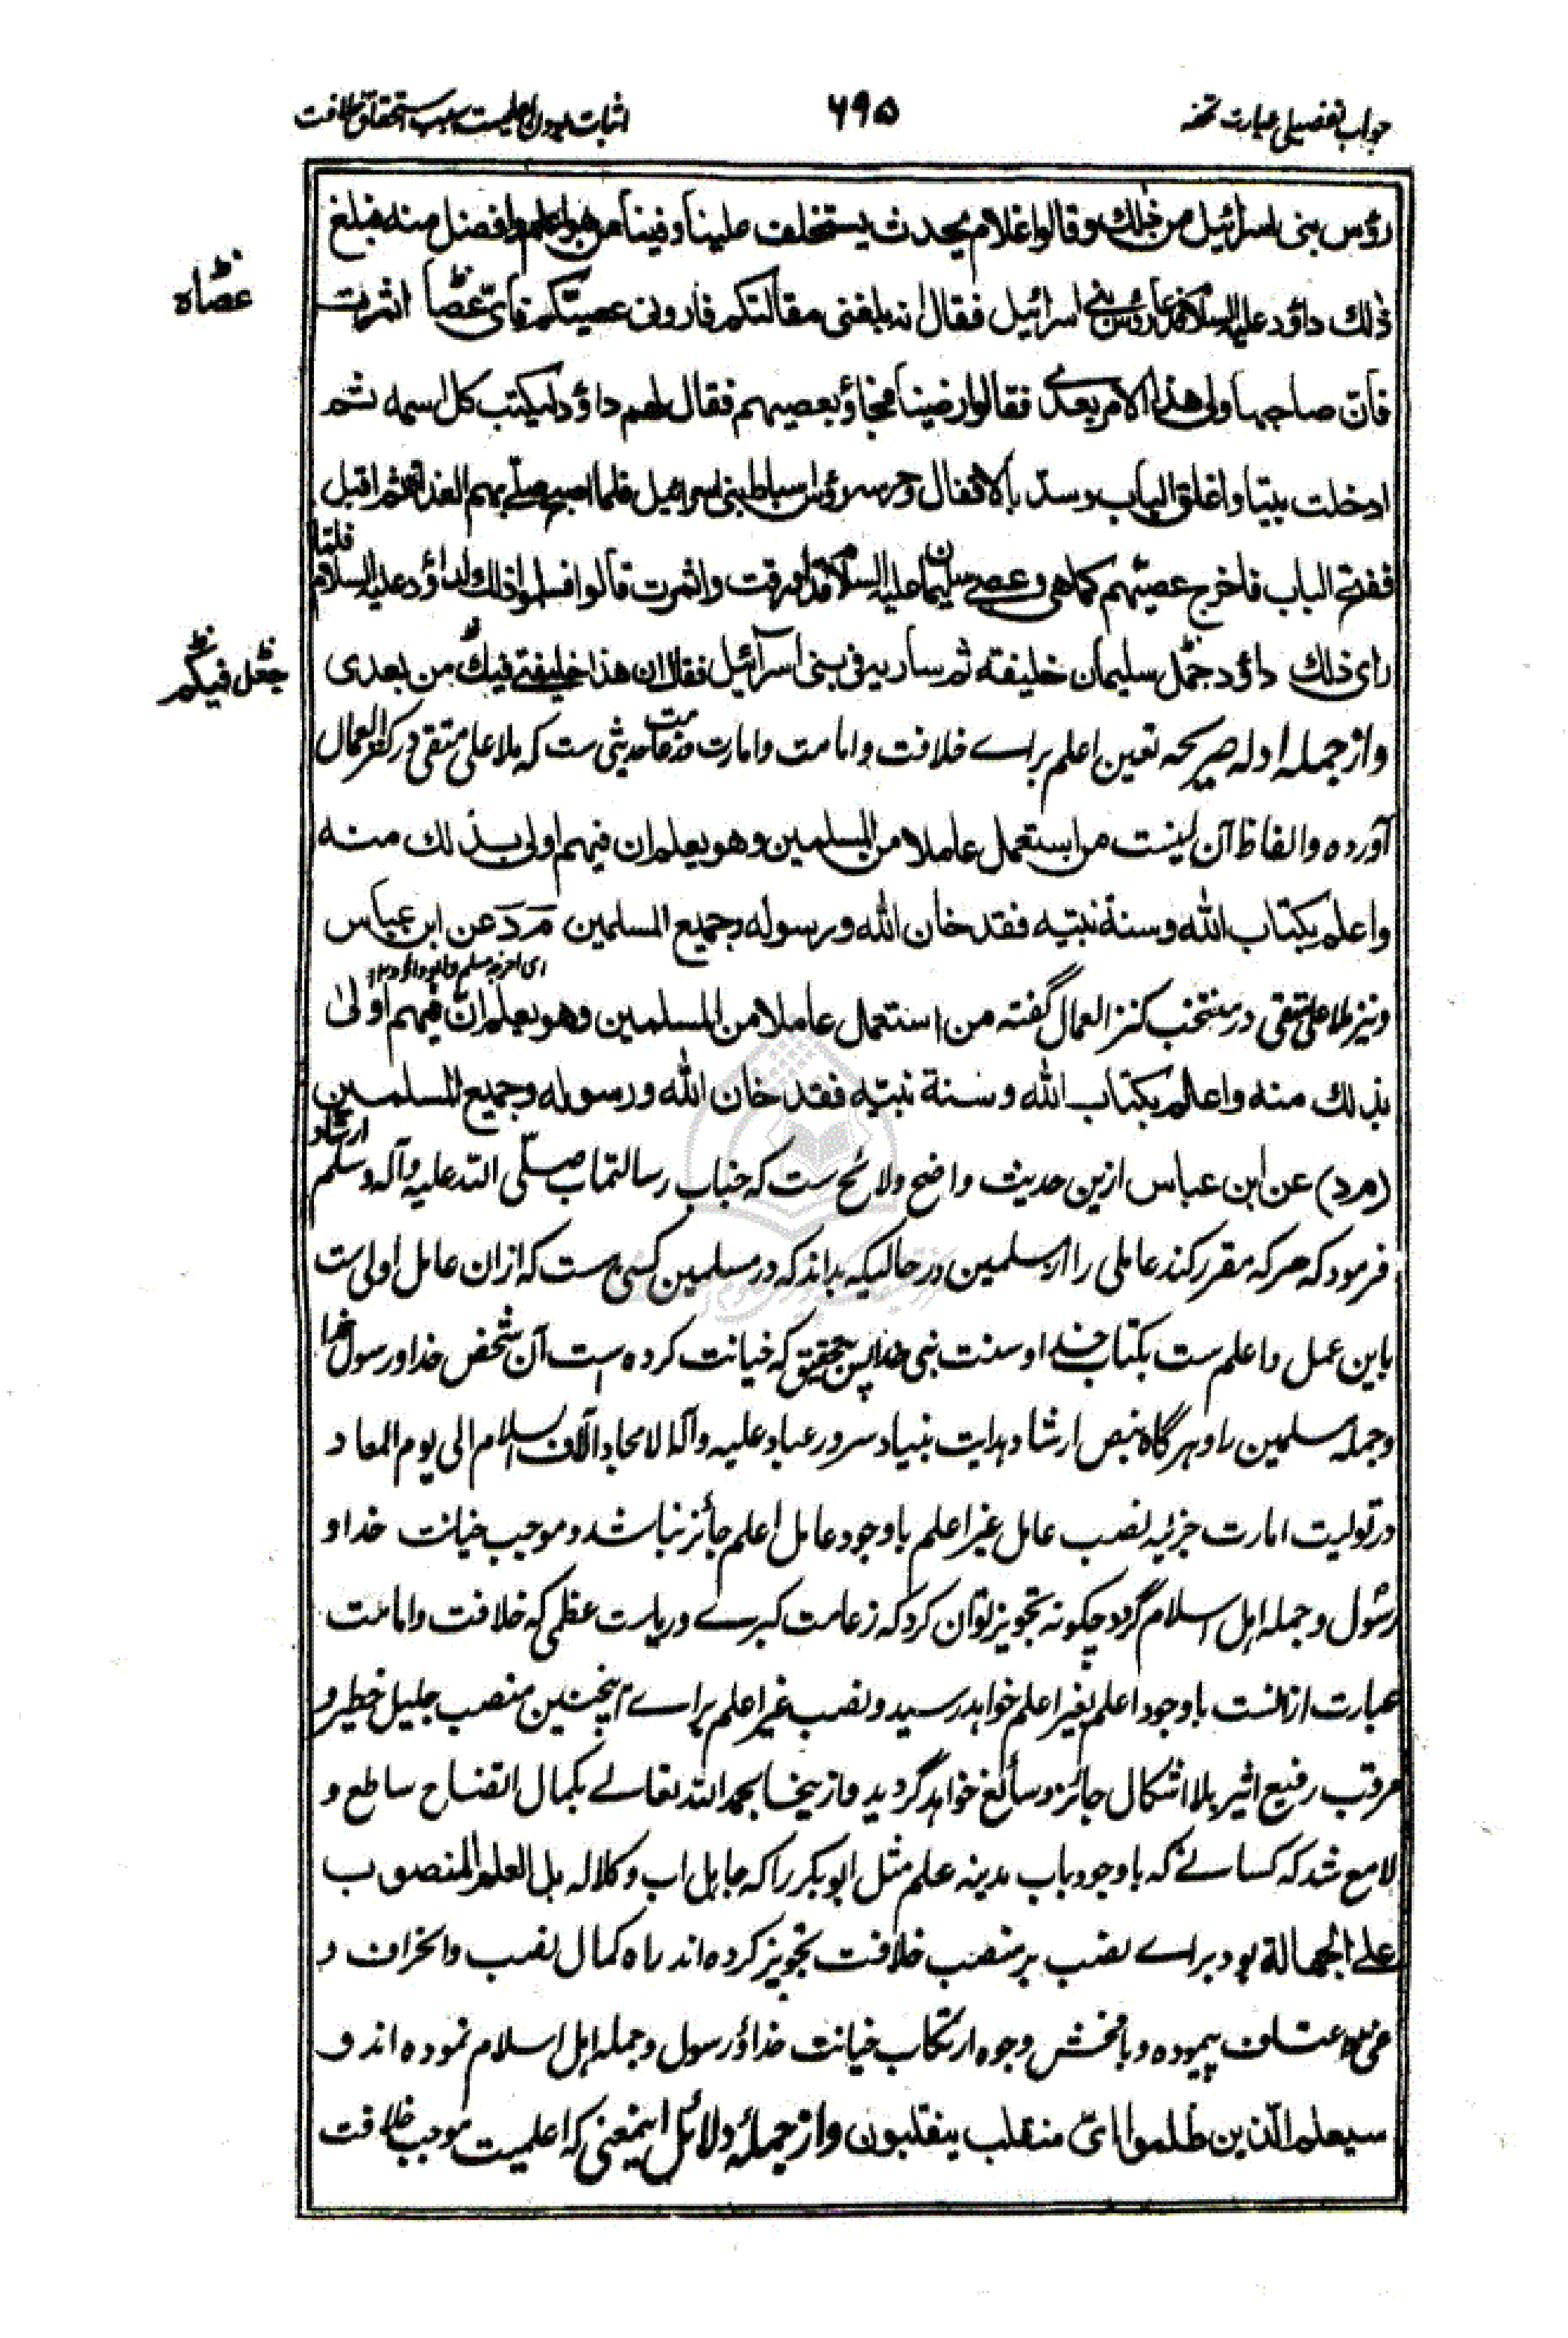 جواب تفصیلی عبارت تحفه
۶۹۵
اثبات بودن اعلمیت سبب استحقاق خلافت
رؤس بنی اسرائیل من ذلك وقالوا غلام یحدث یستخلف علینا وفینا من هو اعلم وافضل منه فبلغ
ذلك داؤد علیه السلام فدعا رؤس بنی اسرائیل فقال انه بلغنی مقالتکم فارونی عصیّکم فایّ عصًا اثمرت
عصاه
فانّ صاحبها ولی هذا الامر بعدی فقالوا رضینا فجاؤ بعصیهم فقال لهم داؤد لیکتب کل اسمه ثم
ادخلت بیتا واغلق الباب وسدّ بالاقفال وحرسه رؤس اسباط بنی اسرائیل فلما اصبح صلّی بهم الغداة ثم اقبل
ففتح الباب فاخرج عصیّهم کما هی وعصی سلیمان علیه السلام قد اورقت واثمرت قالوا فسلموا ذلك لداؤد علیه السلام فلمّا
رای ذلك داؤد جعل سلیمان خلیفته ثم سار به فی بنی اسرآئیل فقال ان هذا خلیفتی فیك من بعدی
جعل فیکم
واز جمله ادله صریحه تعین اعلم برای خلافت وامامت وامارت حدیثی ست که ملا علی متقی در کنز العمال
آورده والفاظ آن اینست من استعمل عاملا من المسلمین وهو یعلم ان فیهم اولی بذلك منه
واعلم بکتاب الله وسنة نبیّه فقد خان الله ورسوله وجمیع المسلمین مَ دَ عن ابن عباس
ای اخرجه مسلم وابو داؤد ۱۲
ونیز ملا علی متقی در منتخب کنز العمال گفته من استعمل عاملا من المسلمین وهو یعلم انّ فیهم اولیٰ
بذلك منه واعلم بکتاب الله وسنة نبیّه فقد خان الله ورسوله وجمیع المسلمین
(مرد) عن ابن عباس ازین حدیث واضح ولائح ست که جناب رسالتماب صلّی الله علیه وآله وسلم ارشاد
فرمود که هر که مقرر کند عاملی را از مسلمین در حالیکه بداند که در مسلمین کسی هست که ازان عامل اولی ست
باین عمل واعلم ست بکتاب خدا وسنت نبی خدا پس بتحقیق که خیانت کرده است آن شخص خدا ورسول خدا
وجمله مسلمین را وهر گاه بنص ارشاد هدایت بنیاد سرور عباد علیه وآله الامجاد آلاف السلام الی یوم المعاد
در تولیت امارت جزئیه نصب عامل غیر اعلم با وجود عامل اعلم جائز نباشد وموجب خیانت خدا و
رسول وجمله اهل اسلام گردد چگونه تجویز توان کرد که زعامت کبری وریاست عظمی که خلافت وامامت
عبارت ازانست با وجود اعلم بغیر اعلم خواهد رسید ونصب غیر اعلم برای اینچنین منصب جلیل خطیر و
مرتب رفیع اثیر بلا اشکال جائز وسائغ خواهد گردید وازینجا بحمد الله تعالی بکمال اتضاح ساطع و
لامع شد که کسانی که با وجود باب مدینه علم مثل ابو بکر را که جاهل اب وکلاله بل العلم المنصوب
علی الجهالة بود برای نصب بر منصب خلافت تجویز کرده اند راه کمال نصب وانحراف و
اعتساف پیموده وبافحش وجوه ارتکاب خیانت خدا ورسول وجمله اهل اسلام نموده اند و
سیعلم الذین ظلموا ایّ منقلب ینقلبون واز جملهٔ دلائل اینمعنی که اعلمیت موجب خلافت